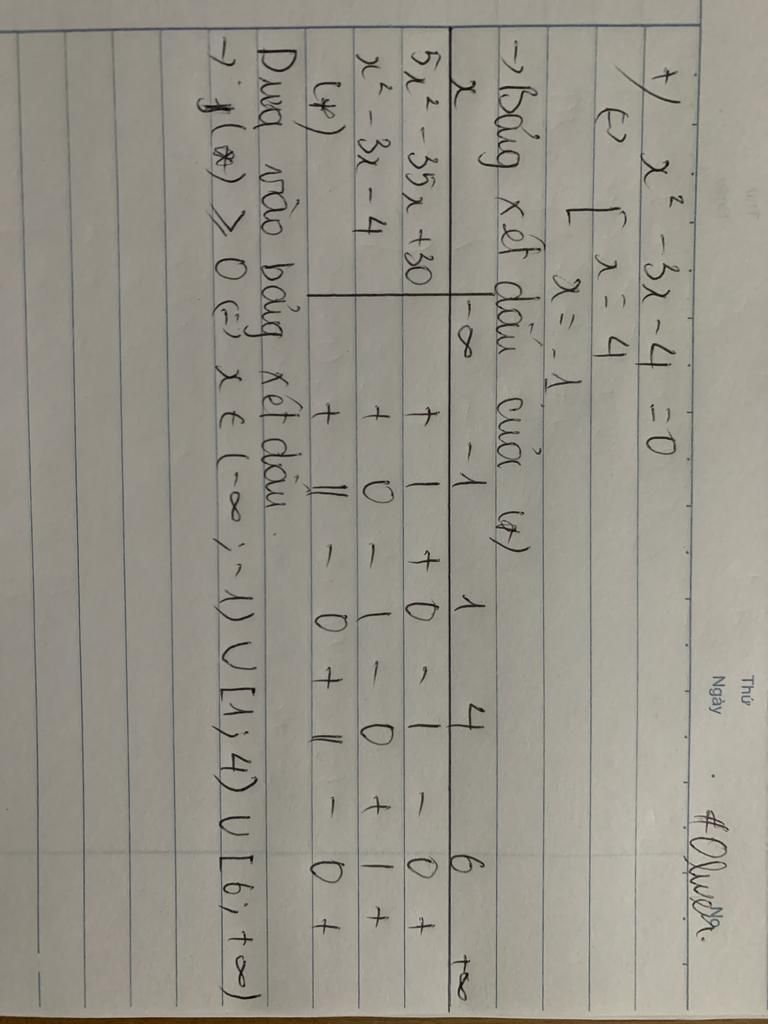 Thứ
Ngày
#Oliver.
+/ x² - 3x - 4 = 0
⇔ [ x = 4
x = -1
→ Bảng xét dấu của (*)
x -∞ -1 1 4 6 +∞
5x² - 35x + 30 + | + 0 - | - 0 +
x² - 3x - 4 + 0 - | - 0 + | +
(*) + || - 0 + || - 0 +
Dựa vào bảng xét dấu.
→ f(*) ≥ 0 ⇔ x ∈ (-∞; -1) ∪ [1; 4) ∪ [6; +∞)